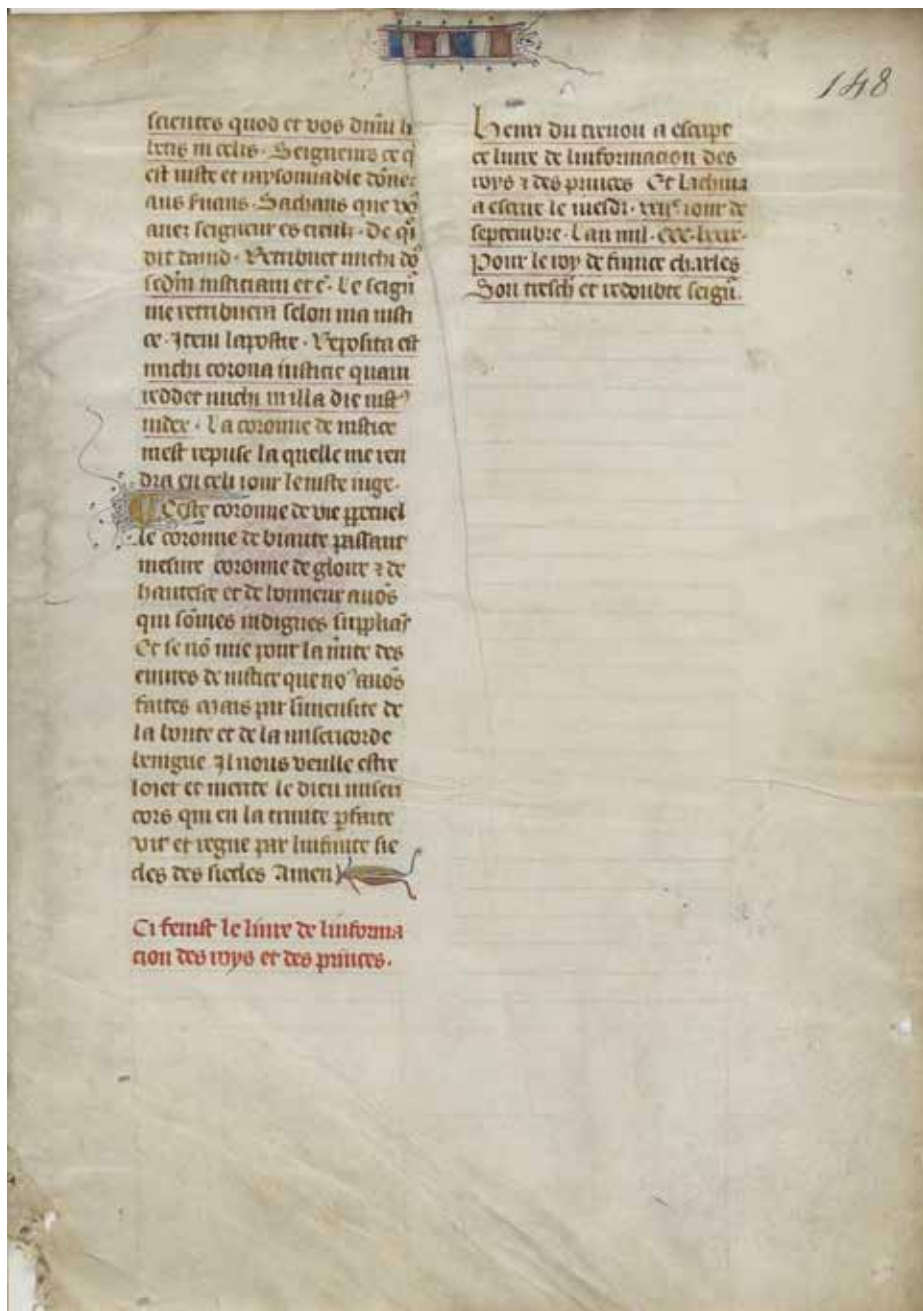 148
scientes quod et vos dñm h
betis in celis. Seigneurs ce q̄
est iuste et raysonnable dōnez
aus s̄uans. Sachans que vo᷒
auez seigneur es cieulz. De q̄
dit dauid. Retribuet michi dō
scd̄m iusticiam et c̄. Le seign̄
me retribuera selon ma iusti
ce. Item lapostre. Reposita est
michi corona iusticie quam
reddet michi in illa die iust᷒
iudex. La coronne de iustice
mest repuse la quelle me ren
dra en celi iour le iuste iuge.
Ceste coronne de vie ꝑpetuel
le coronne de biaute passant
mesure coronne de gloire ⁊ de
hautesce et de lonneur auōs
qui sōmes indignes
Et se nō mie pour la m̄ite des
euures de iustice que no᷒ auōs
faites mais par limensite de
la bonte et de la misericorde
benigne Il nous veulle estre
loier et merite le dieu miseri
cors qui en la trinite ꝑfaite
vit et regne par linfinite sie
cles des siecles Amen
Ci fenist le liure de linforma
cion des roys et des princes.
Henri du treuou a escript
ce liure de linformacion des
roys ⁊ des princes Et lachiua
a escrire le iuesdi. xxiiᵉ iour de
septembre. Lan mil. ccc. lxxix.
Pour le roy de france charles
Son tresch̄ et redoubte seign̄.